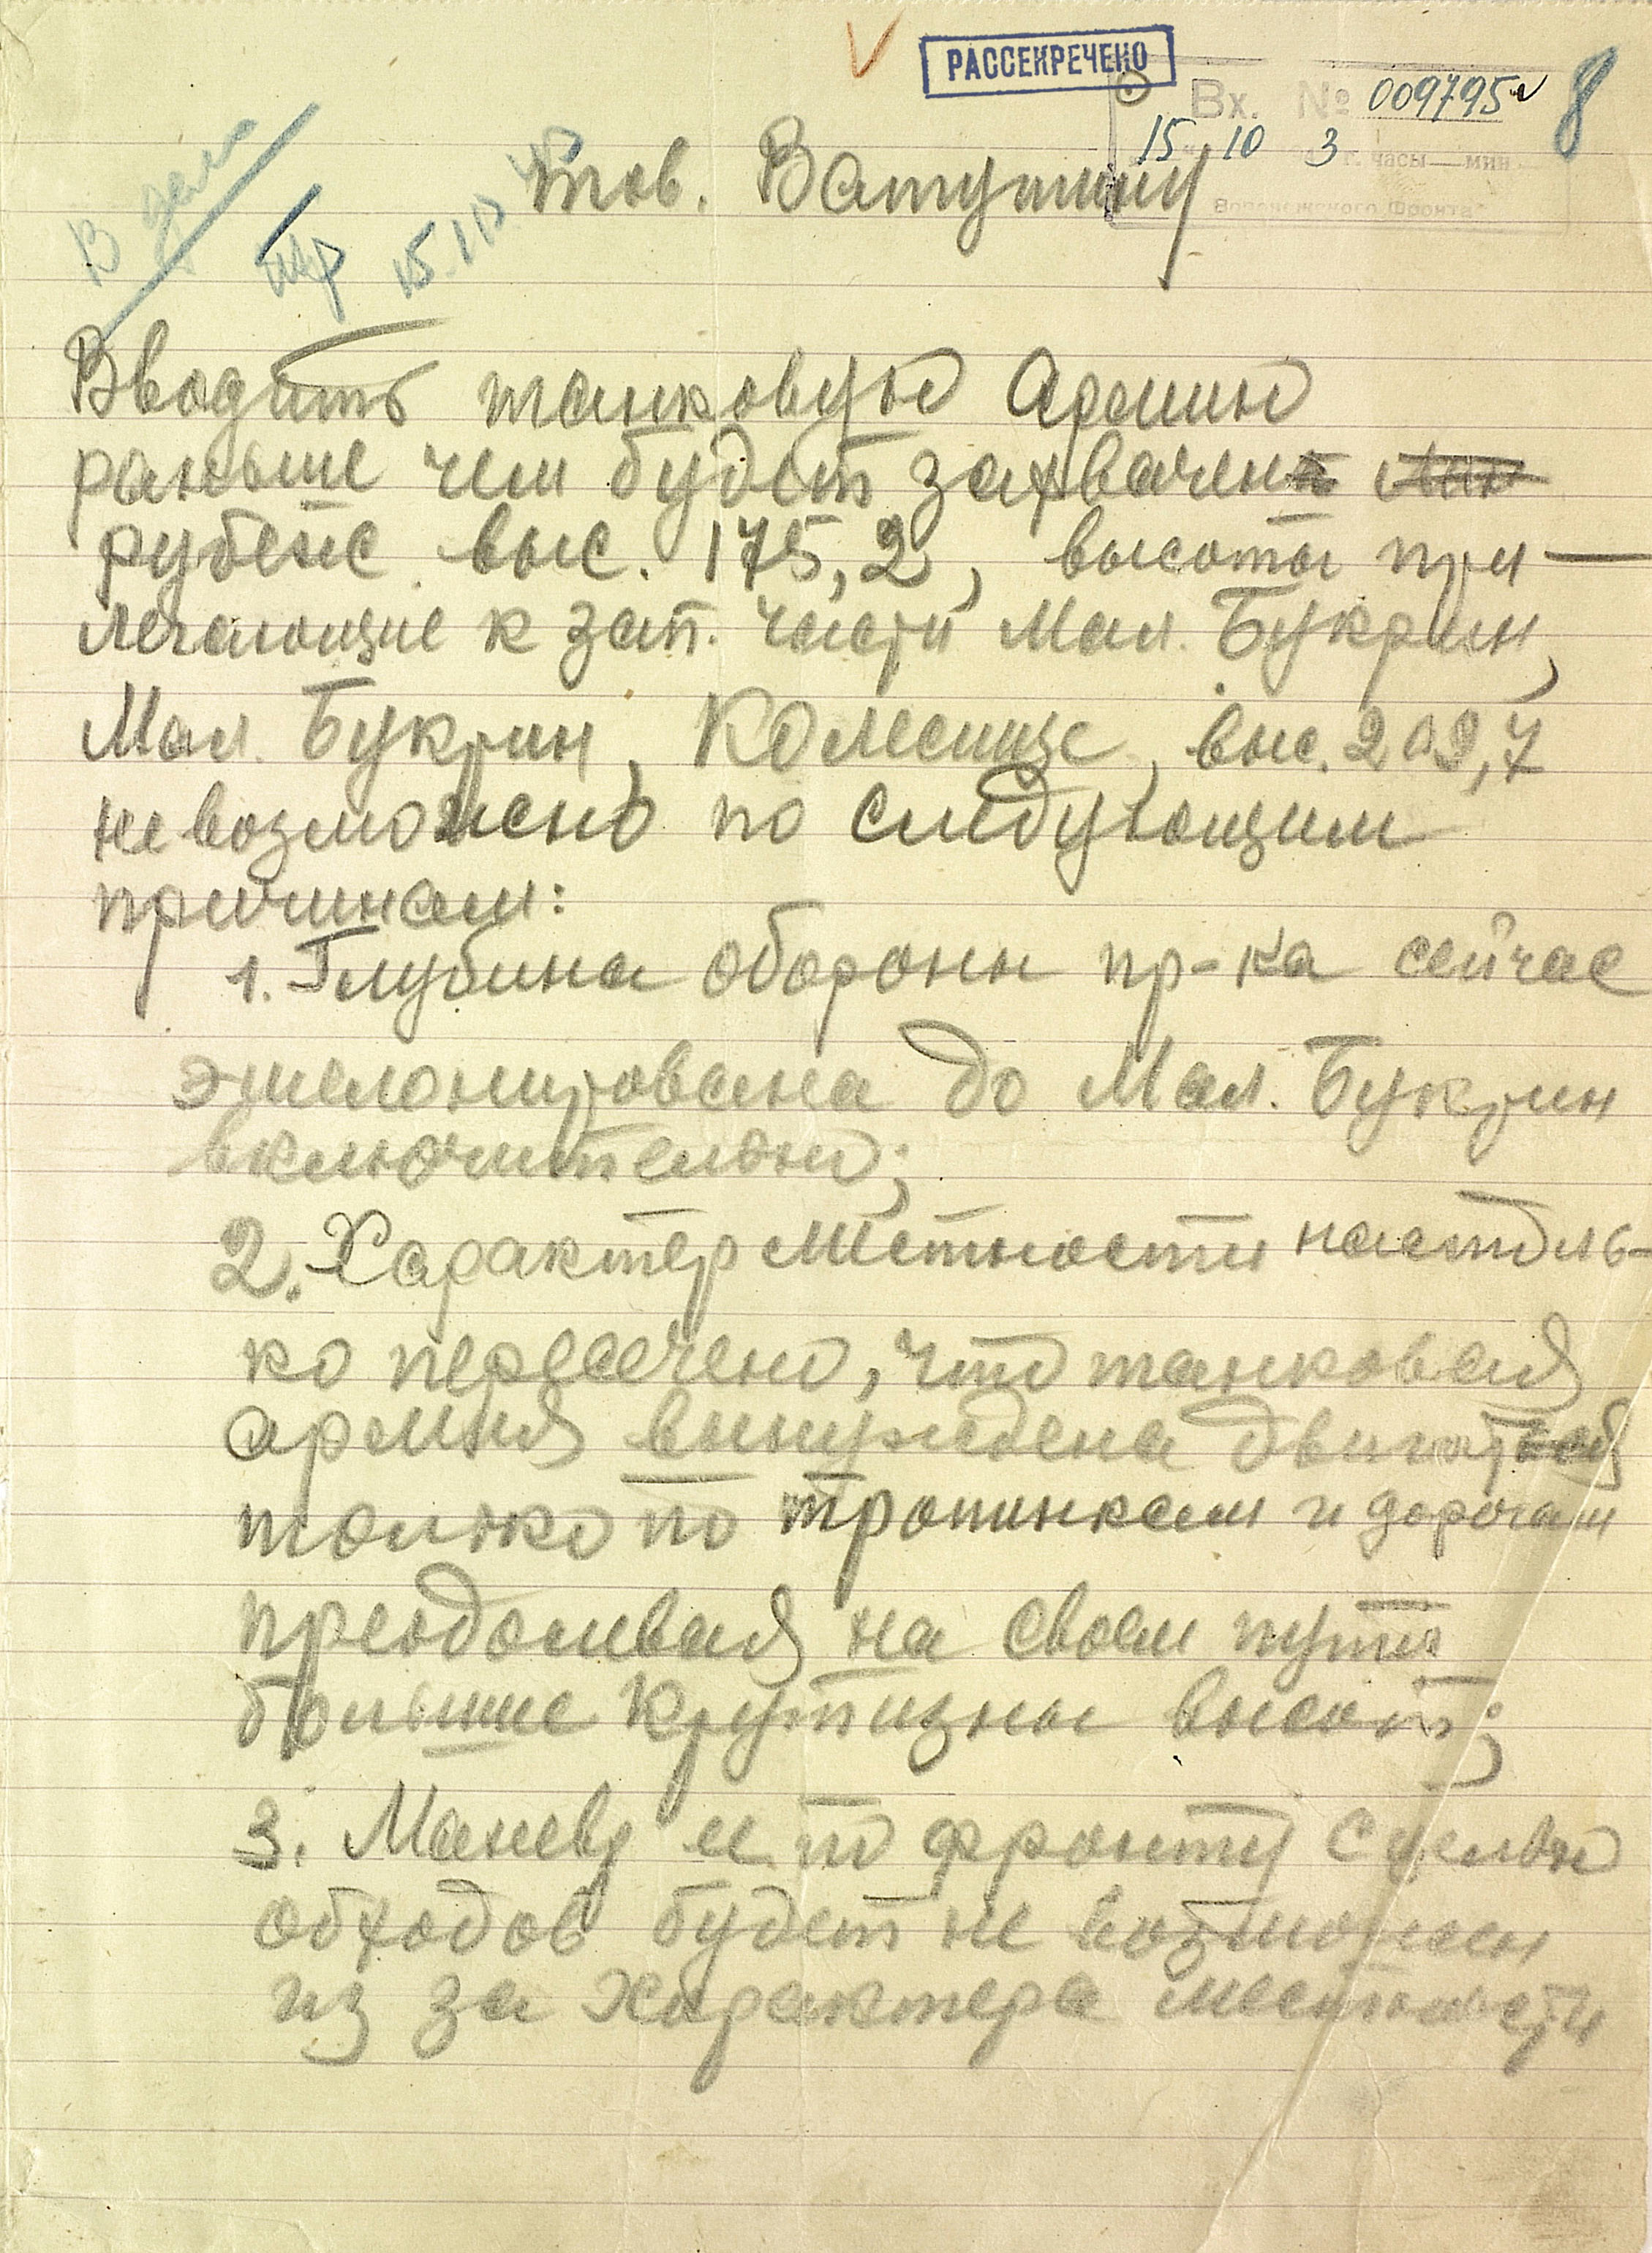 РАССЕКРЕЧЕНО
Вх. № 009795
8
15 10 3 г. часы — мин
Воронежского Фронта
В дело
15.10.43
тов. Ватутину
Вводить танковую Армию
раньше чем будет захвачен
рубеж выс. 175,2, высоты при-
легающие к зап. части Мал. Букрин,
Мал. Букрин, Колесище, выс. 209,7
невозможно по следующим
причинам:
1. Глубина обороны пр-ка сейчас
эшелонирована до Мал. Букрин
включительно;
2. Характер местности настоль-
ко пересечено, что танковая
армия вынуждена двигаться
только по тропинкам и дорогам
преодолевая на своем пути
большие крутизны высот;
3. Маневр и по фронту с целью
обходов будет не возможен
из за характера местности